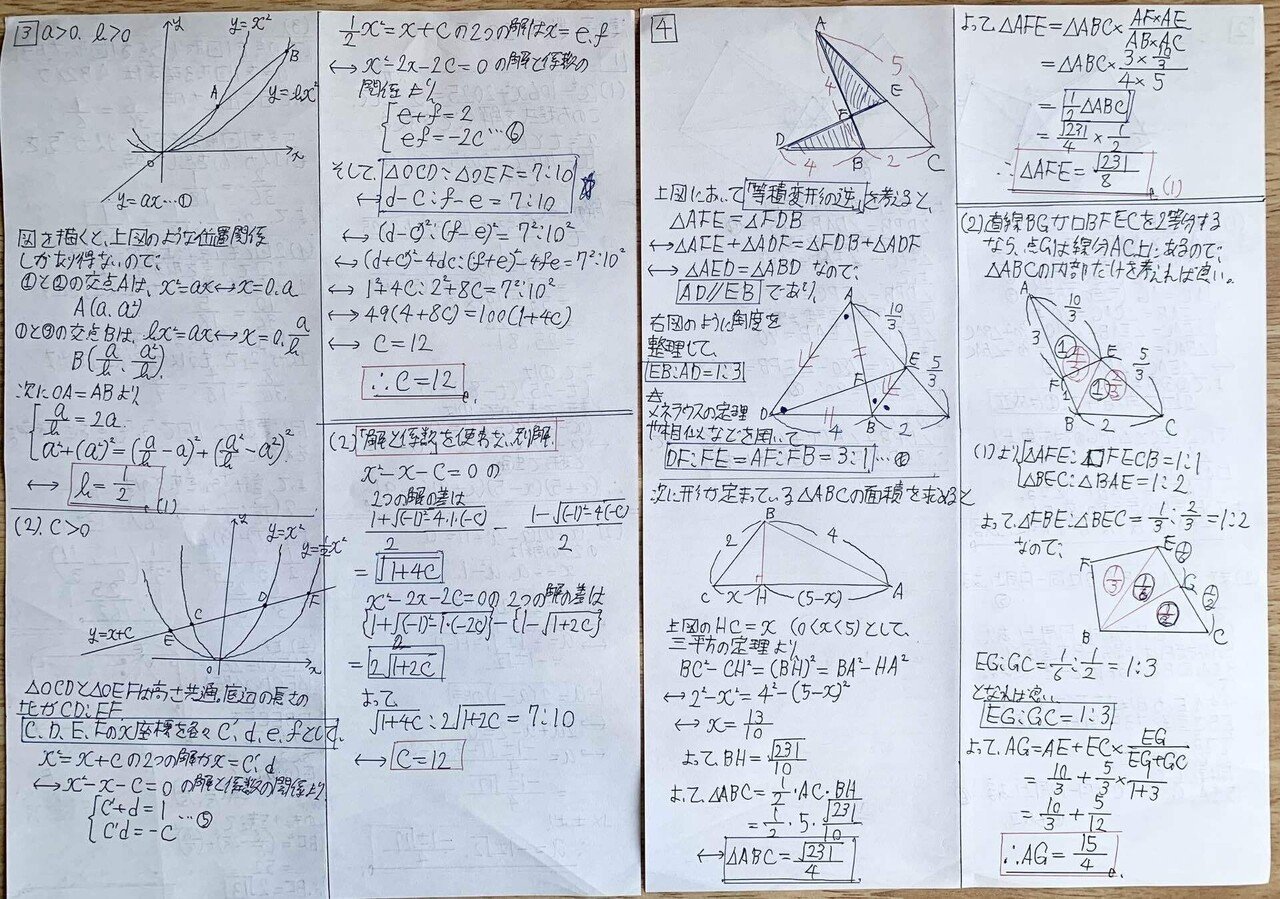 3 a>0. b>0
y
y=x²
B
A
y=bx²
O
x
y=ax…①
図を描くと、上図のような位置関係
しかあり得ないので、
①と②の交点Aは、x²=ax↔x=0.a
A(a. a²)
①と③の交点Bは、bx²=ax↔x=0. a/b
B(a/b. a²/b).
次にOA=ABより
{ a/b=2a.
a²+(a²)²=(a/b-a)²+(a²/b-a²)²
↔ b=1/2 (1)
(2). C>0
y
y=x²
y=1/2x²
F
D
C
E
y=x+C
O
x
△OCDと△OEFは高さ共通。底辺の長さの
比がCD:EF
C. D. E. Fのx座標を各々C'. d. e. fとして、
x²=x+cの2つの解がx=C'.d
↔x²-x-C=0の解と係数の関係より
{ C'+d=1
C'd=-C …⑤
1/2x²=x+Cの2つの解はx=e.f
↔x²-2x-2C=0の解と係数の
関係より
{ e+f=2
ef=-2C …⑥
そして、△OCD:△OEF=7:10
↔d-C:f-e=7:10
↔(d-c)²:(f-e)²=7²:10²
↔(d+c)²-4dc:(f+e)²-4fe=7²:10²
↔1²+4C:2²+8C=7²:10²
↔49(4+8C)=100(1+4C)
↔ C=12
∴C=12
(2)「解と係数」を使わない別解.
x²-x-C=0の
2つの解の差は
1+√(-1)²-4・1・(-C)/2 - 1-√(-1)²-4(-C)/2
=√1+4C
x²-2x-2C=0の2つの解の差は
{1+√(-1)²-1・(-2C)}-{1-√1+2C}
=2√1+2C
よって
√1+4C:2√1+2C=7:10
↔ C=12
4
A
5
4
E
F
D
4
B
2
C
上図において「等積変形の逆」を考えると、
△AFE=△FDB
↔△AFE+△ADF=△FDB+△ADF
↔△AED=△ABD なので、
AD//EB であり、
右図のように角度を
整理して、
EB:AD=1:3
メネラウスの定理
や相似などを用いて
A
10/3
E
5/3
F
D
4
B
2
DF:FE=AF:FB=3:1…⑧
次に形が定まっている△ABCの面積を求めると
B
2
4
C
x
H
(5-x)
A
上図のHC=x (0<x<5)として、
三平方の定理より
BC²-CH²=(BH)²=BA²-HA²
↔2²-x²=4²-(5-x)²
↔ x=13/10
よって、BH=√231/10
よって、△ABC=1/2・AC・BH
=1/2・5・√231/10
↔△ABC=√231/4
よって、△AFE=△ABC×AF×AE/AB×AC
=△ABC×3×10/3/4×5
=1/2△ABC
=√231/4×1/2
∴△AFE=√231/8 (1)
(2)直線BGが□BFECを2等分する
なら、点Gは線分AC上にあるので、
△ABCの内部だけを考えれば良い。
A
10/3
3
①
E
5/3
F
1
①
B
2
C
(1)より{△AFE:□FECB=1:1
△BEC:△BAE=1:2
よって、△FBE:△BEC=1/3:2/3=1:2
なので、
E
F
1/3
1/6
G
1/2
1/2
B
C
EG:GC=1/6:1/2=1:3
となれば良い
EG:GC=1:3
よって、AG=AE+EC×EG/EG+GC
=10/3+5/3×1/1+3
=10/3+5/12
∴AG=15/4